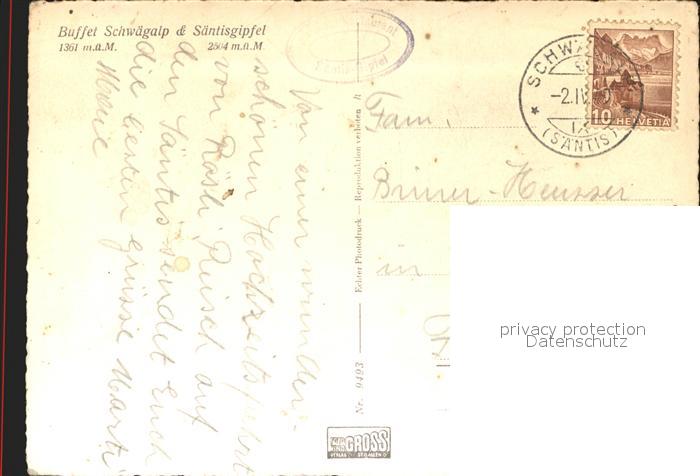 Buffet Schwägalp & Säntisgipfel
1361 m.ü.M. 2504 m.ü.M.
Von einer wunder-
schönen Hochzeitsfahrt
von Rösli Rüsch auf
den Säntis sendet Euch
die besten Grüsse Marti
Marie
Nr. 9493 — Echter Photodruck — Reproduktion verboten
Fam.
Briner-Heusser
in
SCHWÄG
-2.IV
(SÄNTIS)
10 HELVETIA
GROSS
VERLAG ST. GALLEN
privacy protection
Datenschutz